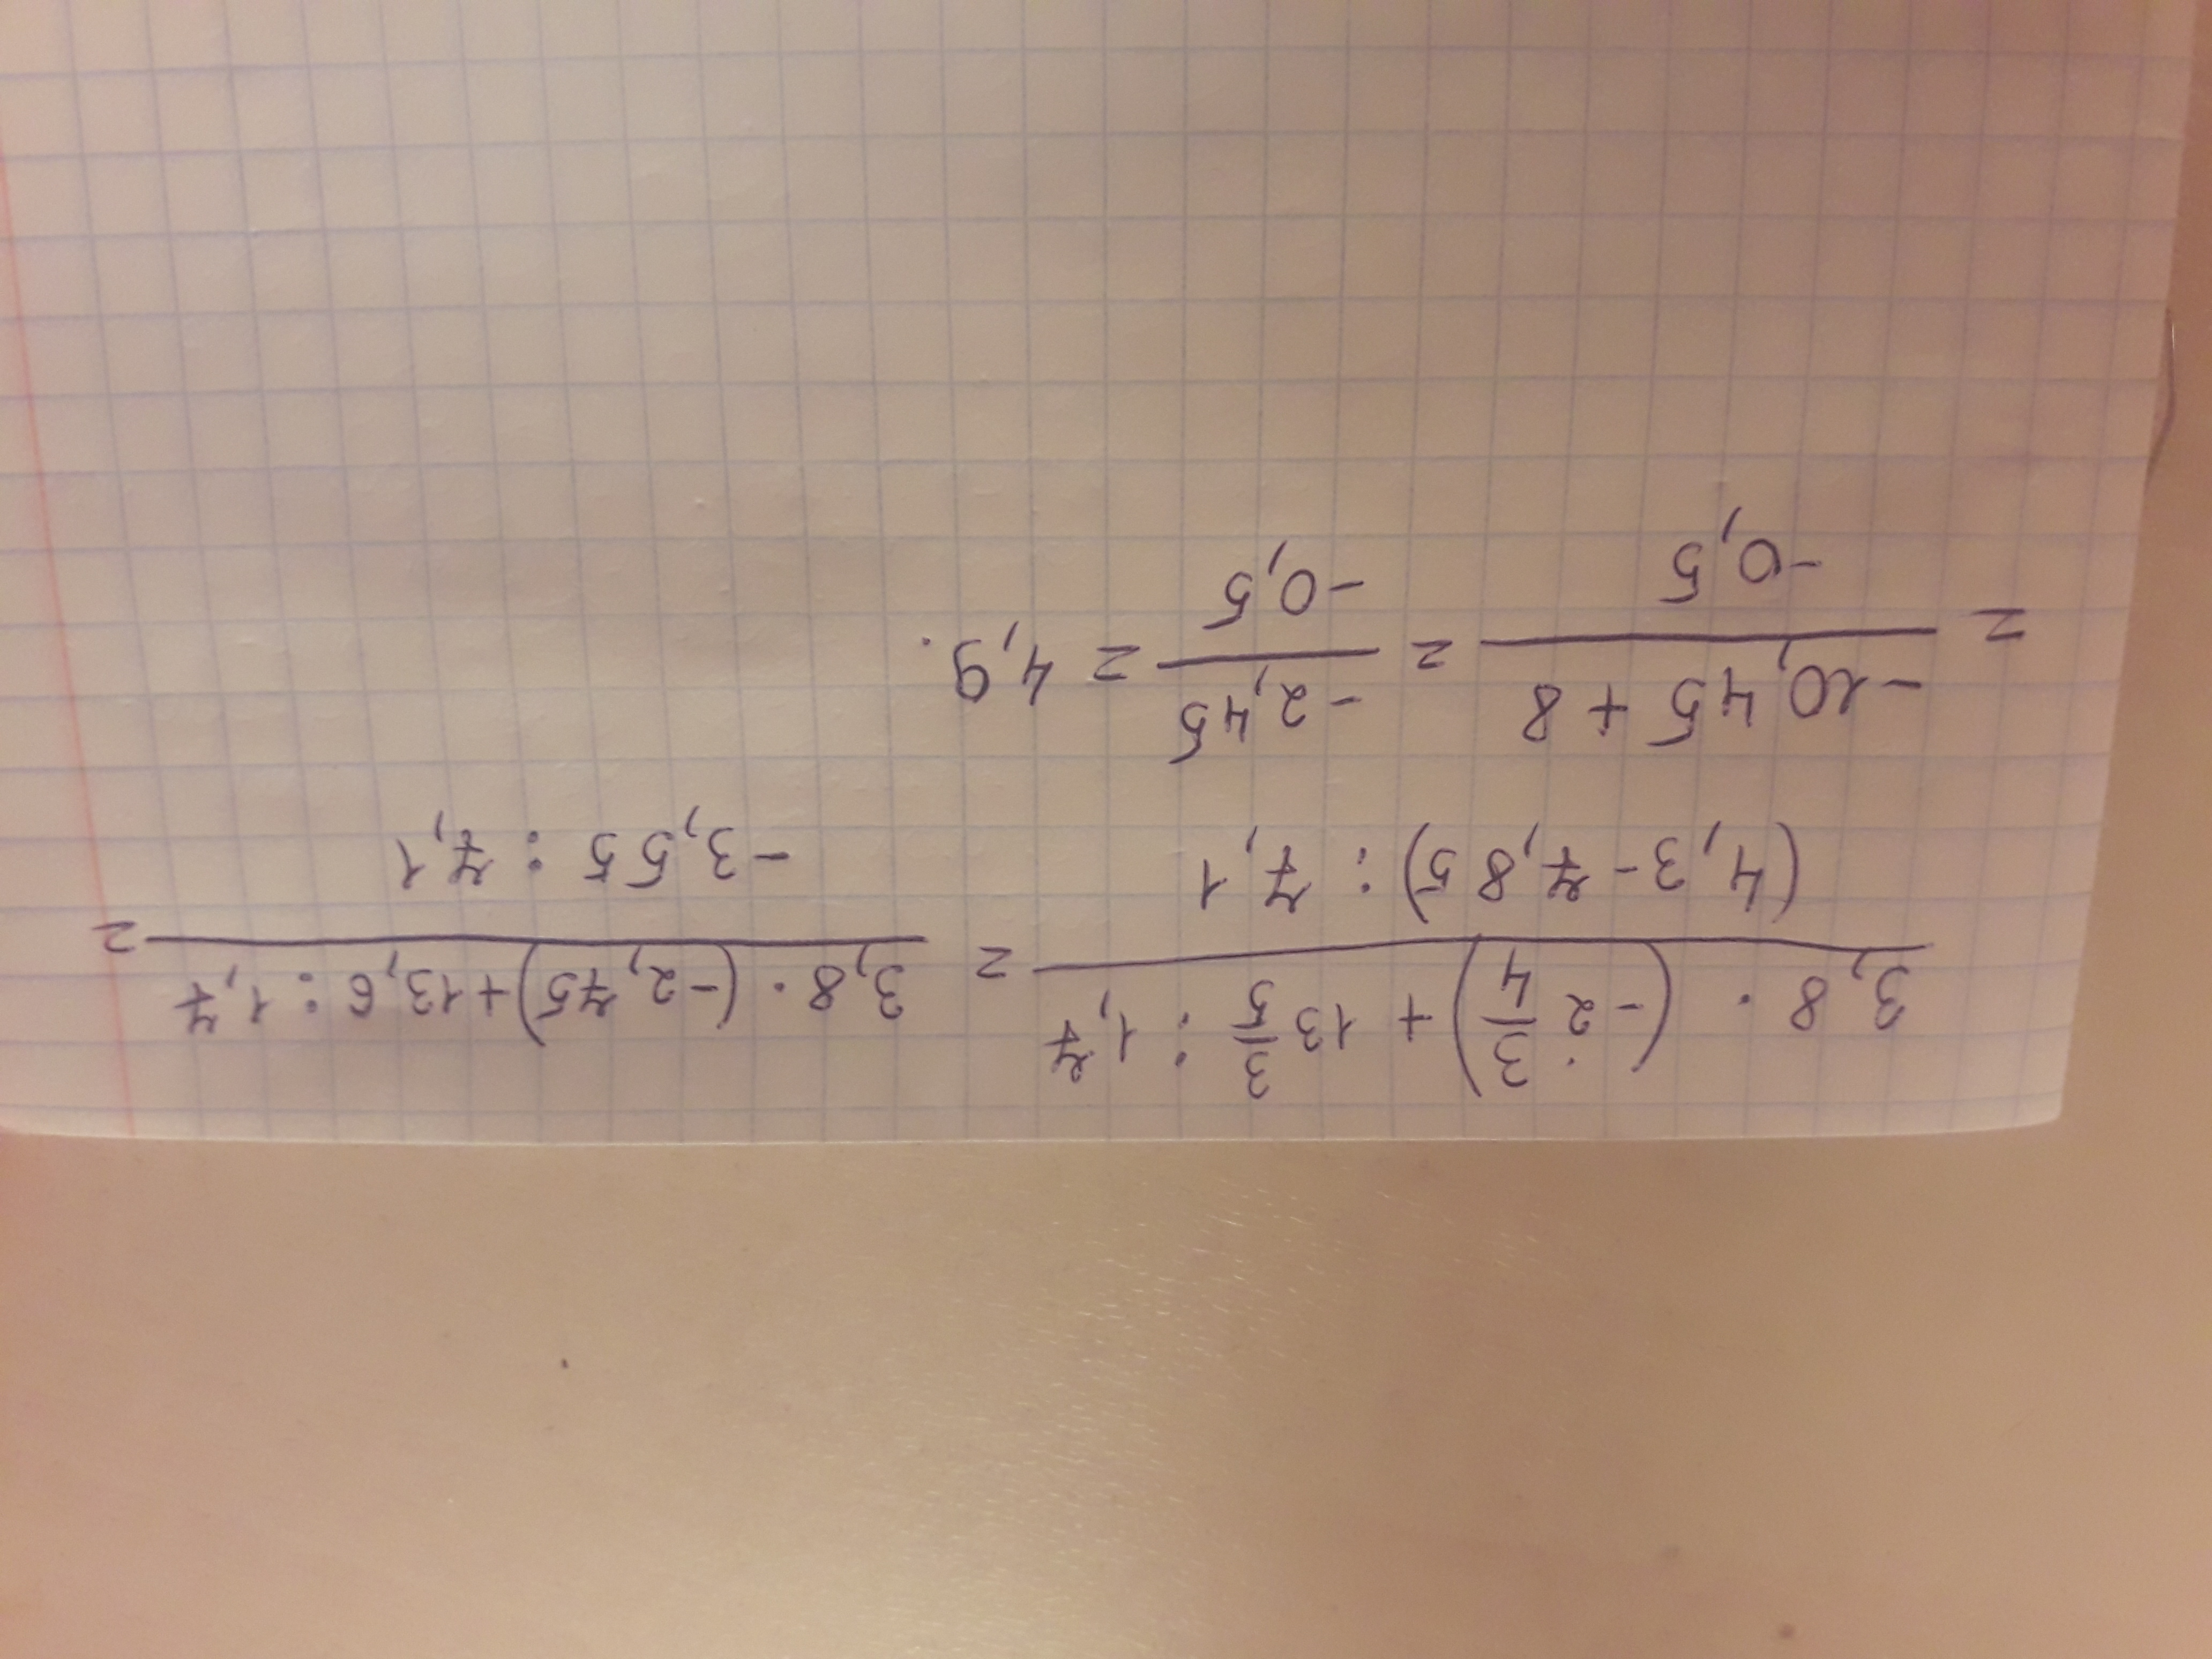 (3,8 · (-2 3/4) + 13 3/5 : 1,7) / ((4,3 - 7,85) : 7,1) = (3,8 · (-2,75) + 13,6 : 1,7) / (-3,55 : 7,1) =
= (-10,45 + 8) / (-0,5) = (-2,45) / (-0,5) = 4,9.